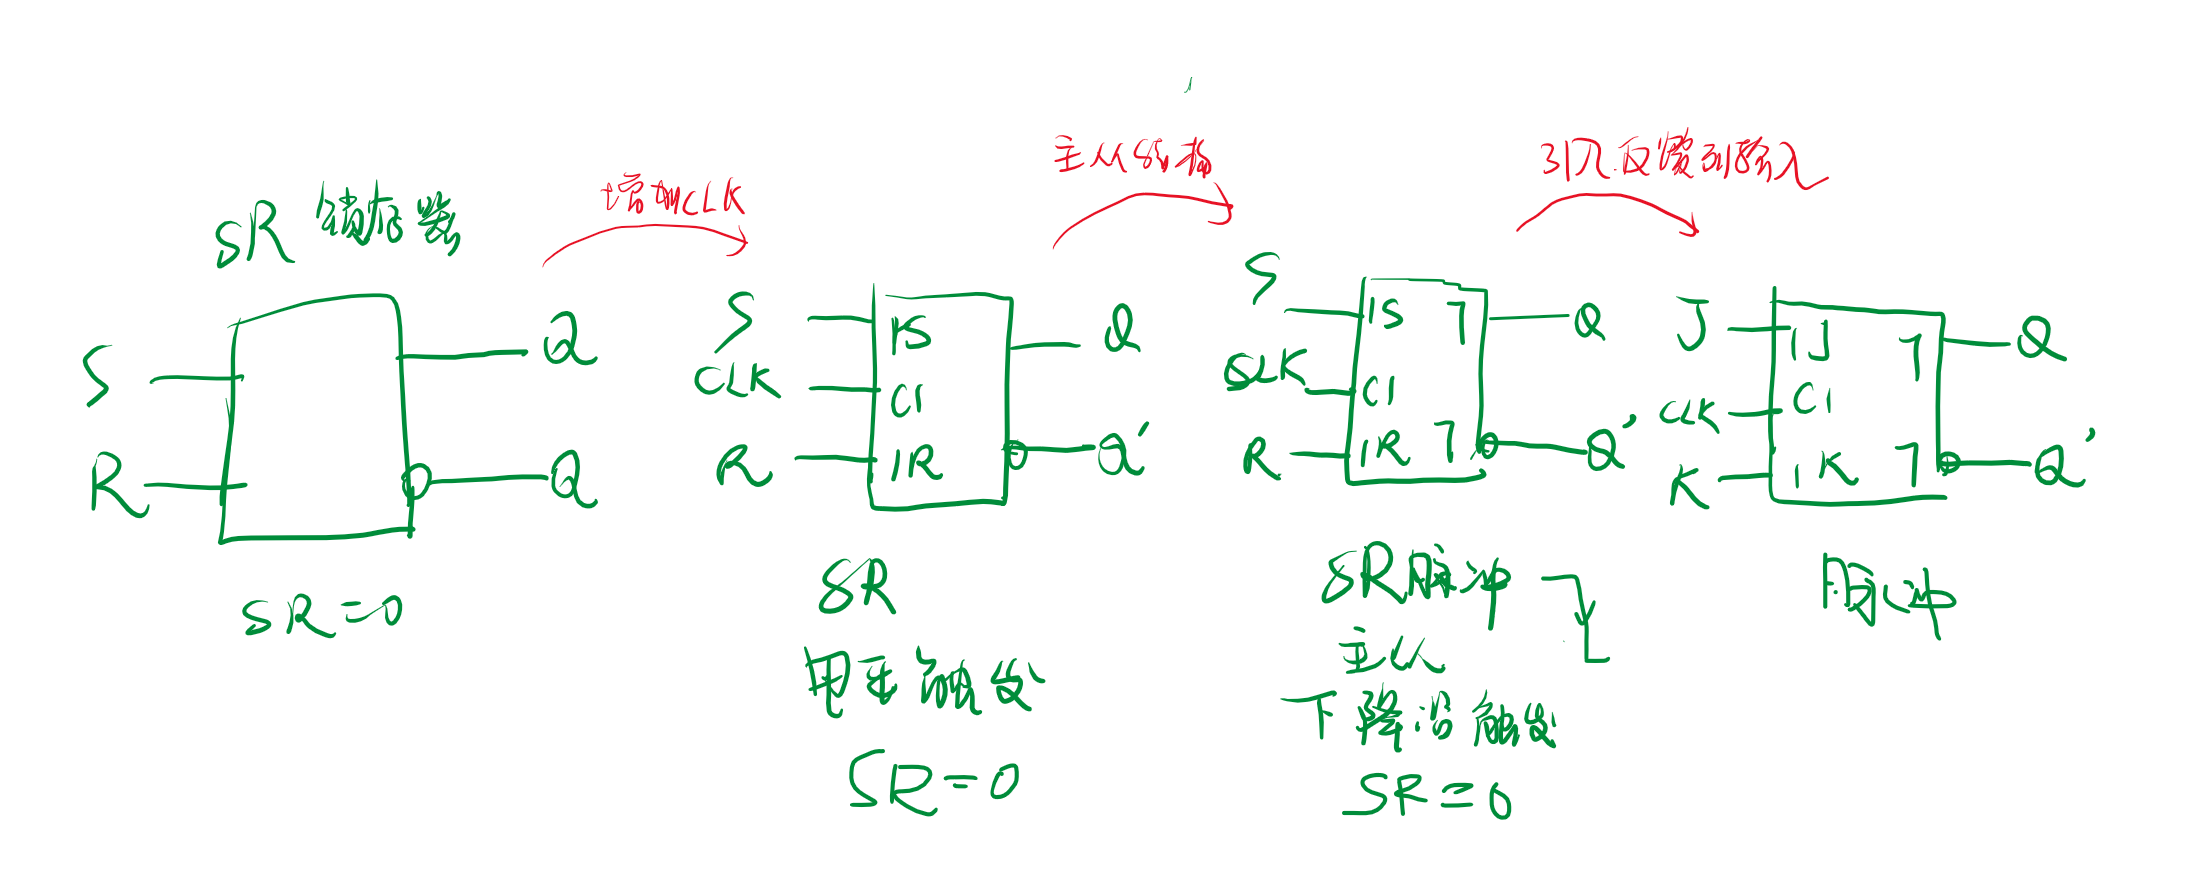 SR 锁存器
S
R
Q
Q
SR=0
增加CLK
S
CLK
R
1S
C1
1R
Q
Q'
SR
电平触发
SR=0
主从结构
S
CLK
R
1S ㄱ
C1
1R ㄱ
Q
Q'
SR脉冲
主从
下降沿触发
SR=0
引入反馈到输入
J
CLK
K
1J ㄱ
C1
1K ㄱ
Q
Q'
脉冲